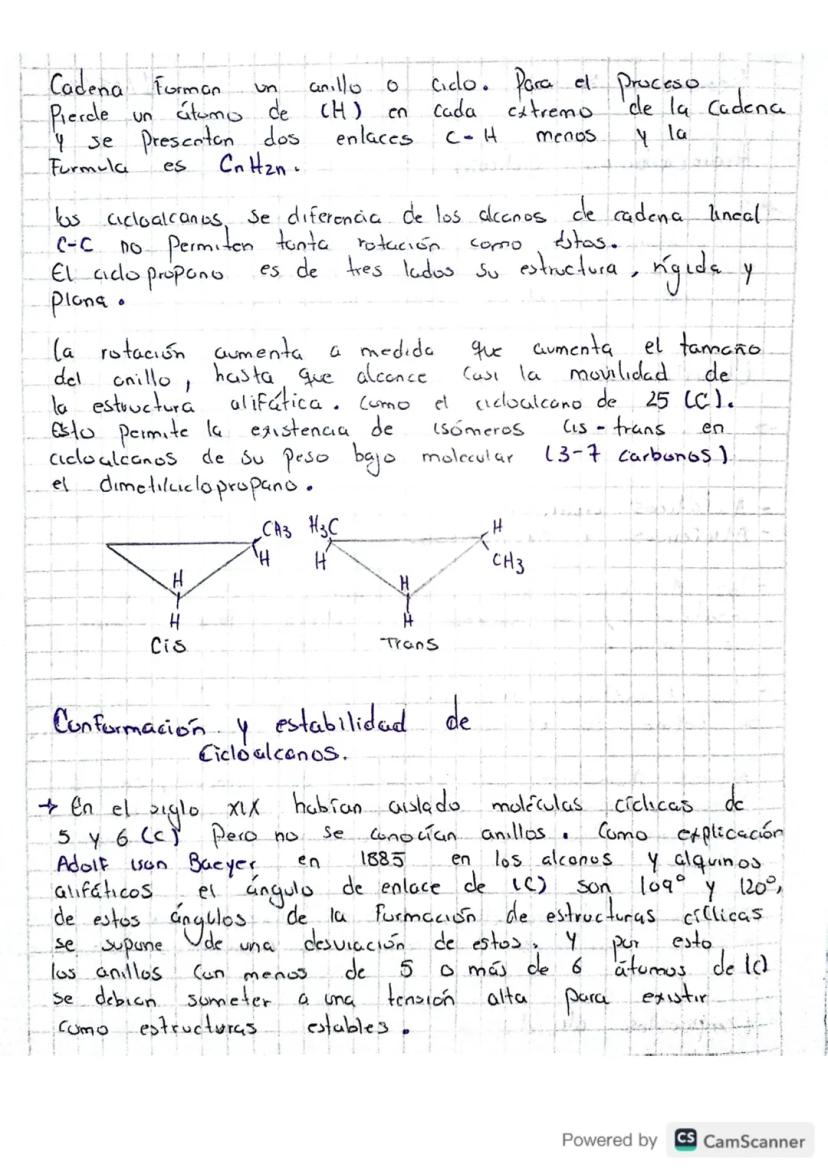 Cadena Forman un anillo o ciclo. Para el proceso
Pierde un átomo de (H) en cada extremo de la Cadena
y se Presentan dos enlaces C-H menos y la
Formula es CnH2n.
los cicloalcanos, se diferencia de los alcanos de cadena lineal
C-C no Permiten tanta rotación como éstos.
El ciclo propano es de tres lados su estructura, rígida y
plana.
la rotación aumenta a medida que aumenta el tamaño
del anillo, hasta que alcance casi la movilidad de
la estructura alifática. Como el cicloalcano de 25 (C).
Esto permite la existencia de isómeros cis-trans en
cicloalcanos de su peso bajo molecular (3-7 carbonos)
el dimetilciclopropano.
CH3 H3C H
H H CH3
H H
H H
Cis Trans
Conformación y estabilidad de
Cicloalcanos.
→ En el siglo XIX habían aislado moléculas cíclicas de
5 y 6 (C) Pero no se conocían anillos. Como explicación
Adolf von Baeyer en 1885 en los alcanos y alquinos
alifáticos el ángulo de enlace de (C) son 109° y 120°,
de estos ángulos de la Formación de estructuras cíclicas
se supone de una desviación de estos. Y por esto
los anillos con menos de 5 o más de 6 átomos de (C)
se debían someter a una tensión alta para existir
como estructuras estables.
Powered by CS CamScanner